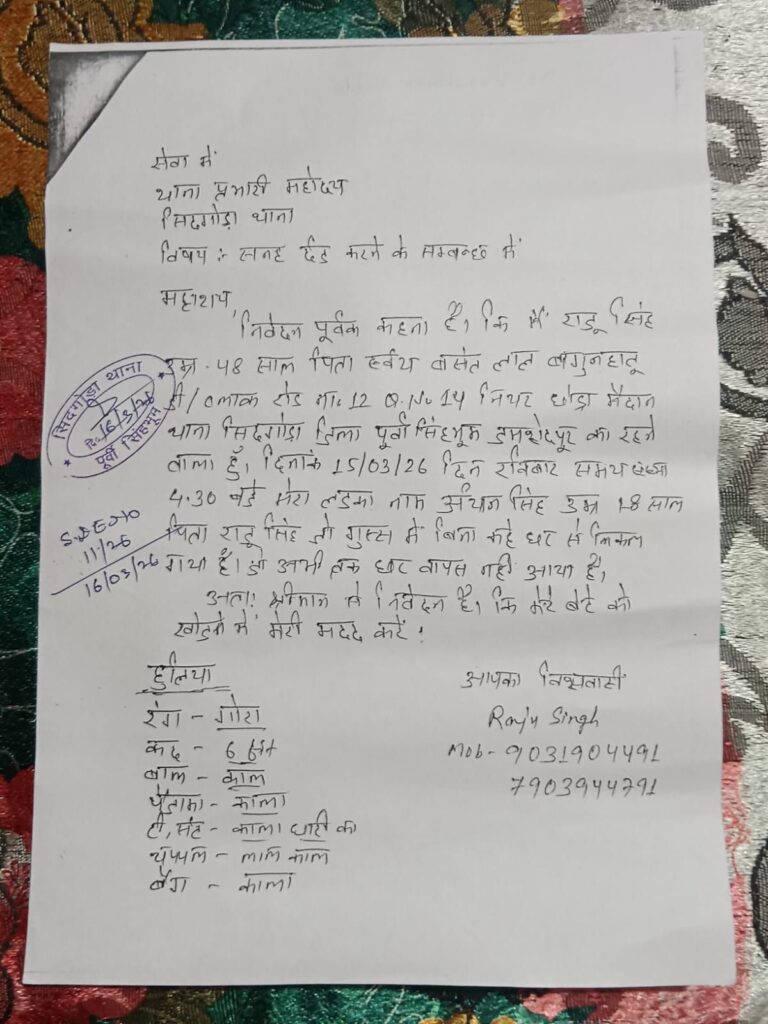 सेवा में
थाना प्रभारी महोदय
सिदगोड़ा थाना
विषय :- सनहा दर्ज करने के सम्बन्ध में
महाशय,
निवेदन पूर्वक कहना है। कि मैं राजू सिंह
उम्र - 48 साल पिता बसंत लाल बागुनहातु
रोड नं. 12 Q.N. 14 नियर छोटा मैदान
थाना सिदगोड़ा जिला पूर्वी सिंहभूम जमशेदपुर का रहने
वाला हूँ। दिनांक 15/03/26 दिन रविवार समय संध्या
4.30 बजे मेरा लड़का नाम सिंह उम्र 18 साल
पिता राजू सिंह जो गुस्स में बिना कहे घर से निकल
गया है। जो अभी तक घर वापस नही आया है।
अतः श्रीमान से निवेदन है। कि मेरे बेटे को
खोजने में मेरी मदद करें।
सिदगोड़ा थाना
16/3/26
पूर्वी सिंहभूम
11/26
16/03/26
हुलिया
रंग - गोरा
कद - 6 फिट
बाल - काल
पैजामा - काला
टी, सर्ट - काला धारी का
चप्पल - लाल काल
बैग - काला
आपका विश्वासी
Raju Singh
Mob - 9031904491
7903944791